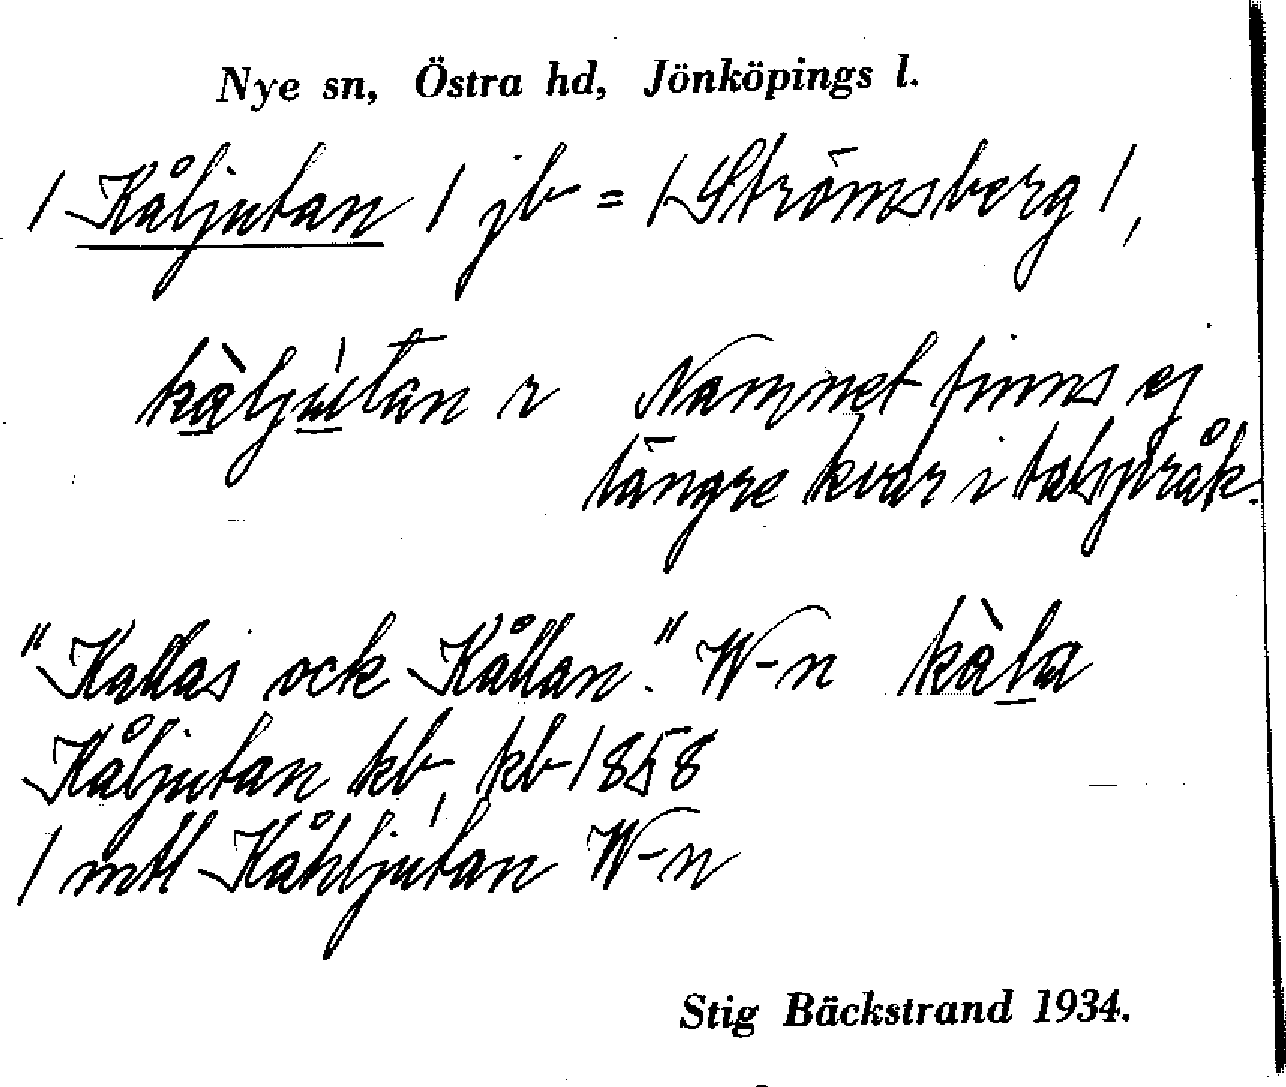 Nye sn, Östra hd, Jönköpings l.
/ Kåljutan / jb = / Strömsberg /,
kàljútan r Namnet finns ej
längre kvar i talspråk.
"Kallas ock Kållan." W-n kàla
Kåljutan kb, kb 1858
/ mtl Kåhljutan W-n
Stig Bäckstrand 1934.